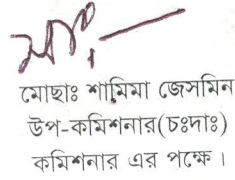 মোছাঃ শামিমা জেসমিন
উপ-কমিশনার(চঃদাঃ)
কমিশনার এর পক্ষে ।